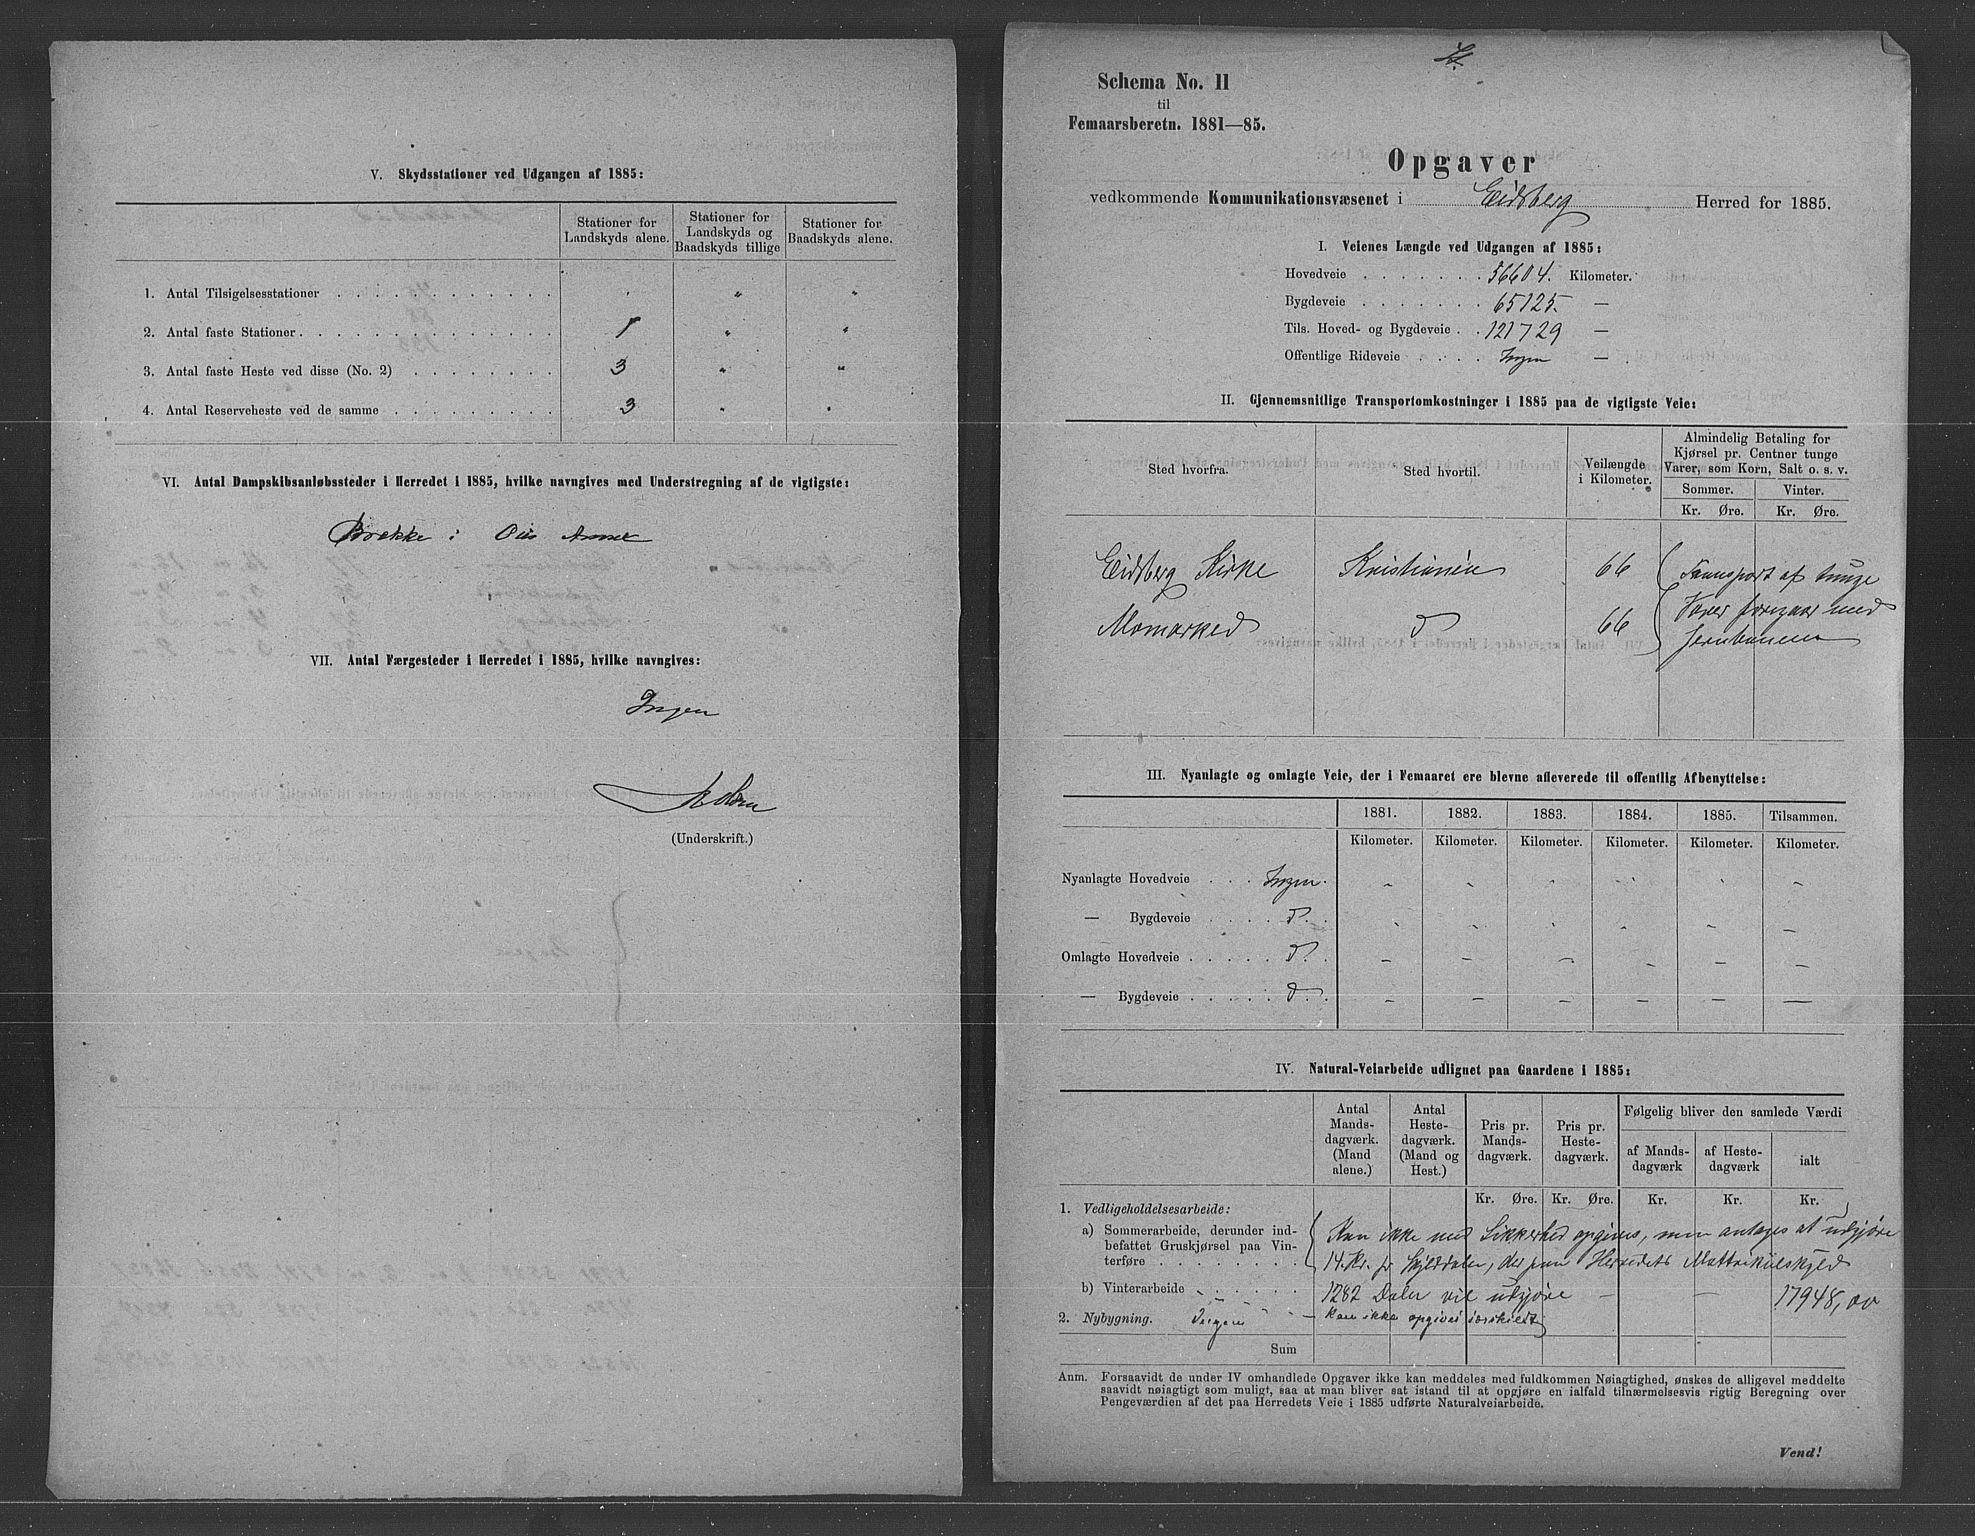 V. Skydsstationer ved Udgangen af 1885:
Stationer for Landskyds alene.
Stationer for Landskyds og Baadskyds tillige
Stationer for Baadskyds alene.
1. Antal Tilsigelsesstationer . . . . . . . . . . . . " "
2. Antal faste Stationer . . . . . . . . . . . . . . 1 " "
3. Antal faste Heste ved disse (No. 2) . . . . . . . . 3 " "
4. Antal Reserveheste ved de samme . . . . . . . . . 3 " "
VI. Antal Dampskibsanløbssteder i Herredet i 1885, hvilke navngives med Understregning af de vigtigste:
Brekke i
VII. Antal Færgesteder i Herredet i 1885, hvilke navngives:
Ingen
(Underskrift.)
Schema No. 11
til
Femaarsberetn. 1881—85.
Opgaver
vedkommende Kommunikationsvæsenet i Eidsberg Herred for 1885.
I. Veienes Længde ved Udgangen af 1885:
Hovedveie . . . . . . . 56604. Kilometer.
Bygdeveie . . . . . . . 65125. —
Tils. Hoved- og Bygdeveie . . 121729 —
Offentlige Rideveie . . . . Ingen — .
II. Gjennemsnitlige Transportomkostninger i 1885 paa de vigtigste Veie:
Sted hvorfra.
Sted hvortil.
Veilængde i Kilometer.
Almindelig Betaling for
Kjørsel pr. Centner tunge
Varer, som Korn, Salt o. s. v.
Sommer. Vinter.
Kr. Øre. Kr. Øre.
Eidsberg Kirke Kristiania 66 Transport af tunge
Varer foregaar med
Momarked d 66 Jernbanen
III. Nyanlagte og omlagte Veie, der i Femaaret ere blevne afleverede til offentlig Afbenyttelse:
1881. 1882. 1883. 1884. 1885. Tilsammen.
Kilometer. Kilometer. Kilometer. Kilometer. Kilometer. Kilometer.
Nyanlagte Hovedveie . . . Ingen. - - - - - -
— Bygdeveie . . . . d. - - - - - -
Omlagte Hovedveie . . . . . d. - - - - - -
— Bygdeveie . . . . . d. - - - - - —
IV. Natural-Veiarbeide udlignet paa Gaardene i 1885:
Antal Mandsdagværk. (Mand alene.)
Antal Hestedagværk. (Mand og Hest.)
Pris pr. Mandsdagværk.
Pris pr. Hestedagværk.
Følgelig bliver den samlede Værdi
af Mandsdagværk
af Hestedagværk
ialt
Kr. Øre. Kr. Øre. Kr. Kr. Kr.
1. Vedligeholdelsesarbeide:
a) Sommerarbeide, derunder indbefattet Gruskjørsel paa Vinterføre . . . . . . .
Kan ikke med Sikkerhed opgives, men antages at udgjøre
14 Kr. pr Skylddaler, der paa Herredets Matrikulskyld
b) Vinterarbeide . . . . . 1282 Daler vil udgjøre - - 17948,00
2. Nybygning. Ingen — kan ikke opgives særskildt
Sum
Anm. Forsaavidt de under IV omhandlede Opgaver ikke kan meddeles med fuldkommen Nøiagtighed, ønskes de alligevel meddelte
saavidt nøiagtigt som muligt, saa at man bliver sat istand til at opgjøre en ialfald tilnærmelsesvis rigtig Beregning over
Pengeværdien af det paa Herredets Veie i 1885 udførte Naturalveiarbeide.
Vend!